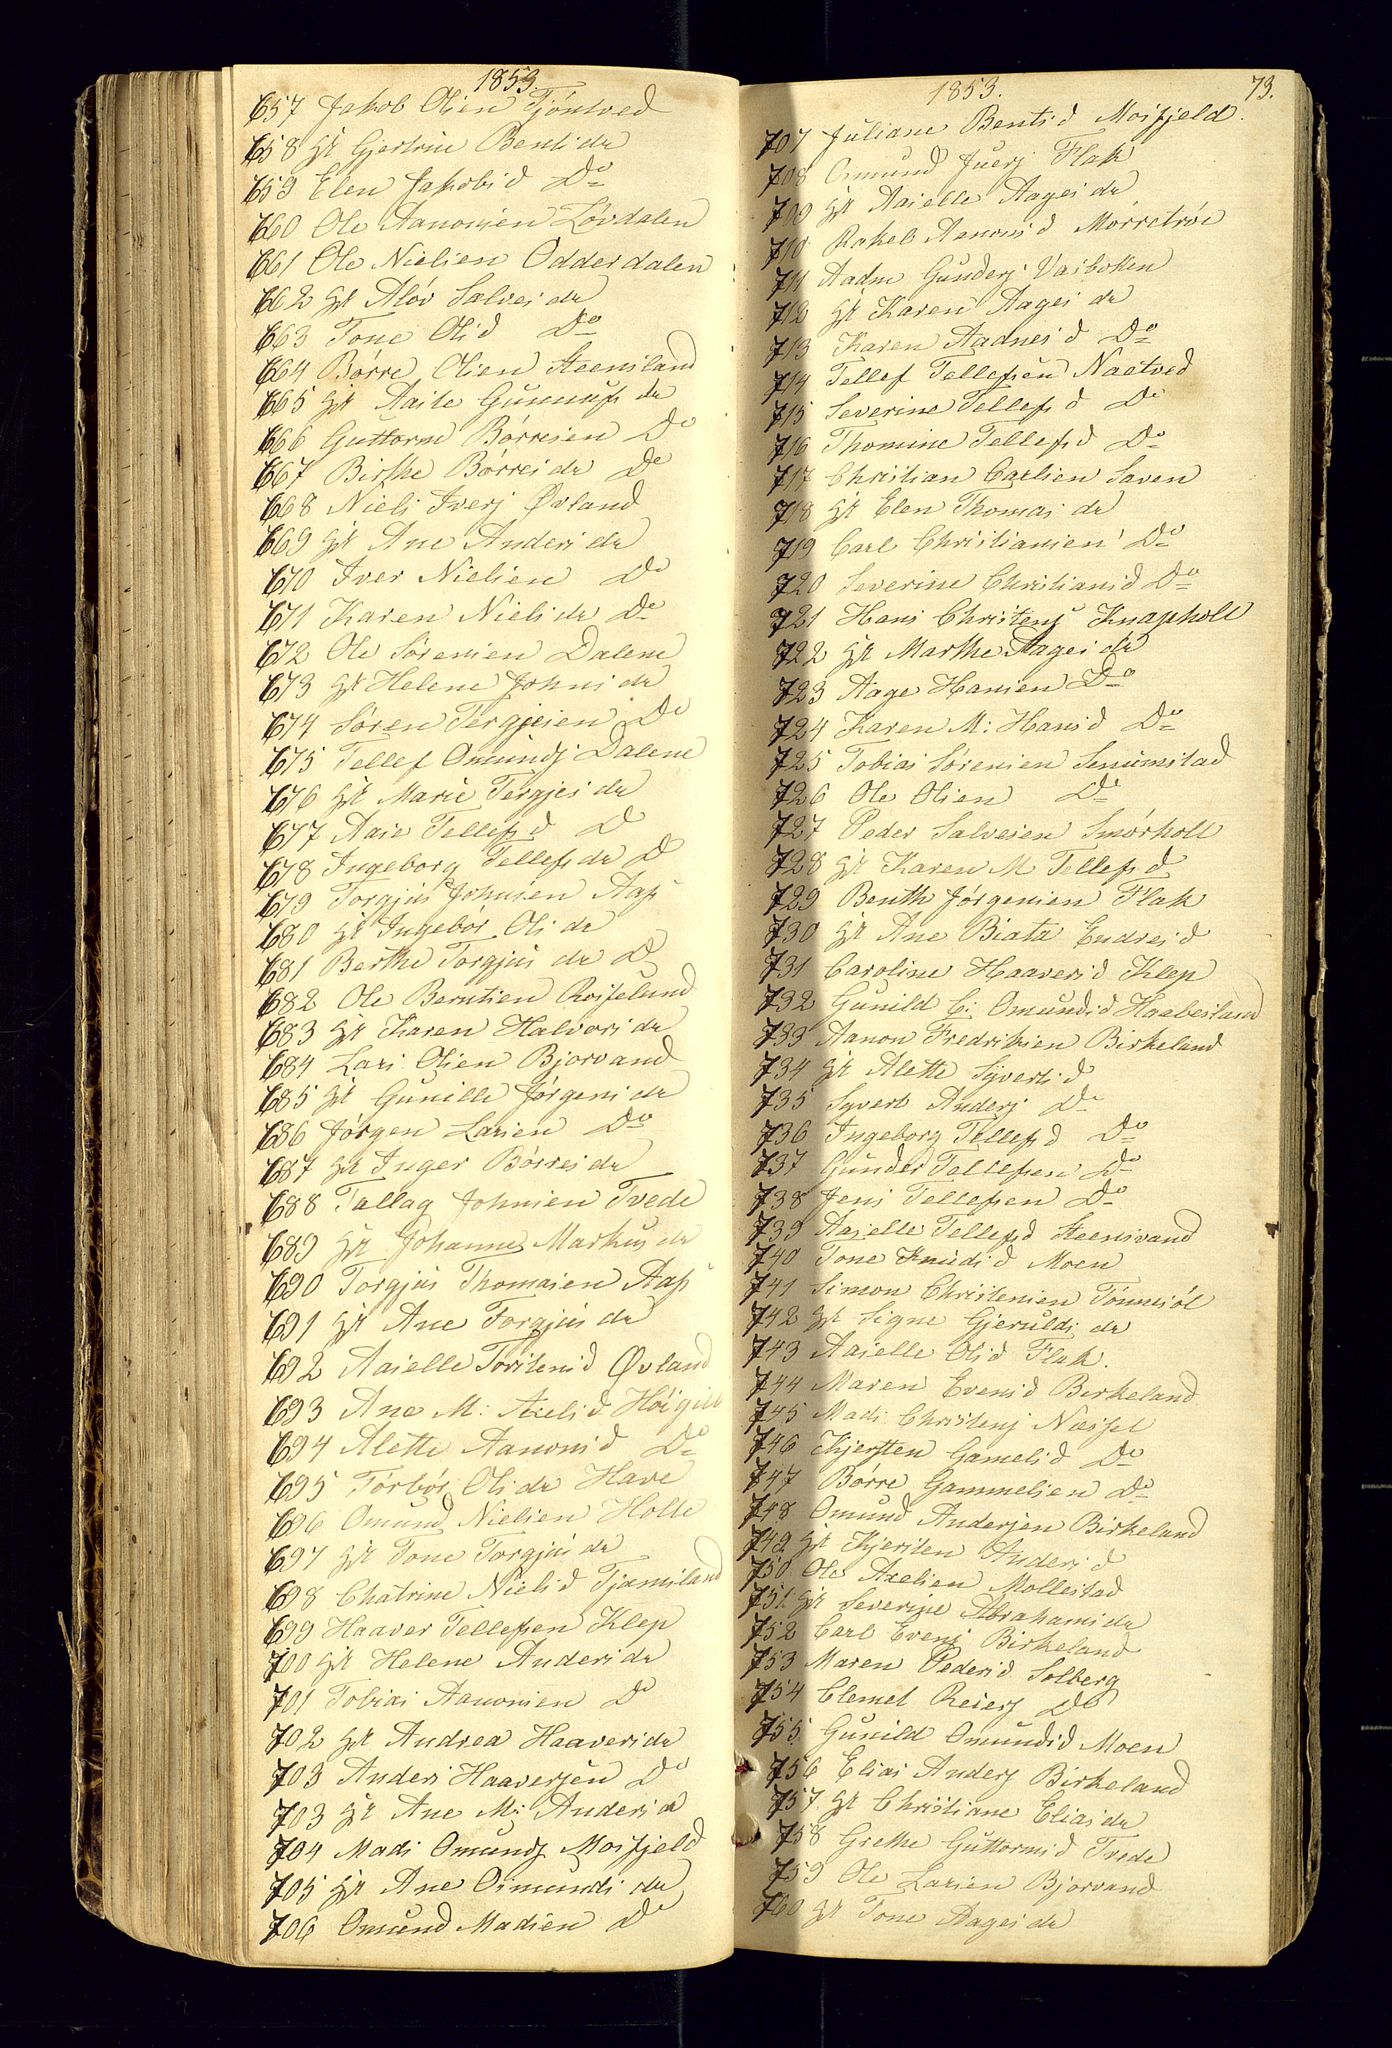 1853.
657 Jakob Olsen Tjöntved
658 Hr Gjertrue Bentsdr
659 Elen Jakobsd Do
660 Ole Aanonsen Lövdalen
661 Ole Nielsen Odderdalen
662 Hr Aslöv Salvesdr
663 Tone Olsd Do
664 Börre Olsen Steensland
665 Hr Aaste Gunnufsdr
666 Guttorm Börresen Do
667 Birthe Börresdr Do
668 Niels Iversj Øvland
669 Hr Ane Andersdr
670 Iver Nielsen Do
671 Karen Nielsdr Do
672 Ole Sörensen Dalene
673 Hr Helene Johnsdr
674 Sören Tergjesen Do
675 Tellef Omundsj Dalene
676 Hr Marie Tergjesdr
677 Aase Tellefsd D
678 Ingeborg Tellefsdr D
679 Torgjus Johnsen Aas
680 Hr Ingebör Olsdr
681 Berthe Torgjusdr D
682 Ole Berntsen Rosselund
683 Hr Karen Halvorsdr
684 Lars Olsen Bjorvand
685 Hr Gunille Jörgensdr
686 Jørgen Larsen Do
687 Hr Inger Börresdr
688 Tallag Johnsen Tvede
689 Hr Johanne Markusdr
690 Torgjus Thomasen Aas
691 Hr Ane Torgjusdr
692 Aaselle Torstensd Øvland
693 Ane M: Axelsd Höigild
694 Alette Aanonsd Do
695 Törbör Olsdr Have
696 Omund Nielsen Holte
697 Hr Tone Torgjusdr
698 Chatrine Nielsd Tjæmsland
699 Haaver Tellefsen Klep
700 Hr Helene Andersdr
701 Tobias Aanonsen Do
702 Hr Andrea Haaversdr
703 Anders Haaversen Do
703 Hr Ane M: Andersdr
704 Mads Omundsj Mosfjeld
705 Hr Ane Osmundsdr
706 Omund Madsen Do
1853. 73.
707 Juliane Bentsd Mosfjeld.
708 Omund Juersj Flak
709 Hr Aaselle Aagesdr
710 Rakel Aanonsd Mörretröe
711 Aadne Gundersj Vasboken
712 Hr Karen Aagesdr
713 Karen Aadnesd Do
714 Tellef Tellefsen Naetved
715 Severine Tellefsd Do
716 Thomine Tellefsd Do
717 Christian Carlsen Saven
718 Hr Elen Thomasdr
719 Carl Christiansen Do
720 Severine Christiansd Do
721 Hans Christensj Knapholt
722 Hr Marthe Aagesdr
723 Aage Hansen Do
724 Karen M: Hansd Do
725 Tobias Sörensen Senumstad
726 Ole Olsen Do
727 Peder Salvesen Smörholt
728 Hr Karen M Tellefsd
729 Benth Jörgensen Flak
730 Hr Ane Biata Endresd
731 Caroline Haaversd Klep
732 Gunild C: Omundsd Haabesland
733 Aanon Fredriksen Birkeland
734 Hr Alette Syvertsd
735 Syvert Andersj Do
736 Ingeborg Tellefsd Do
737 Gunder Tellefsen Do
738 Jens Tellefsen Do
739 Aaselle Tellefsd Steensvand
740 Tone Knudsd Moen
741 Simon Christensen Tönnesöl
742 Hr Signe Gjeruldsdr
743 Aaselle Olsd Flak.
744 Maren Evensd Birkeland
745 Mads Christensj Næssel
746 Kjersten Gamelsd Do
747 Börre Gammelsen Do
748 Omund Andersen Birkeland
749 Hr Kjersten Andersd
750 Ole Axelsen Mollestad
751 Hr Severine Abrahamsdr
752 Carl Evensj Birkeland
753 Maren Pedersd Solberg
754 Clemet Reiersj Do
755 Gunild Omundsd Moen
756 Elias Andersj Birkeland
757 Hr Christiane Eliasdr
758 Grethe Guttormsd Tvede
759 Ole Larsen Bjorvand
760 Hr Tone Aagesdr